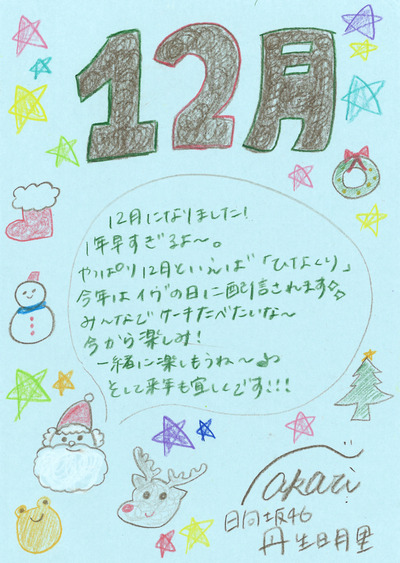 12月
12月になりました!
1年早すぎるよ〜。
やっぱり12月といえば「ひなくり」
今年はイヴの日に配信されます
みんなでケーキたべたいな〜
今から楽しみ!
一緒に楽しもうね〜♪
そして来年も宜しくです!!!
akari
日向坂46
丹生明里